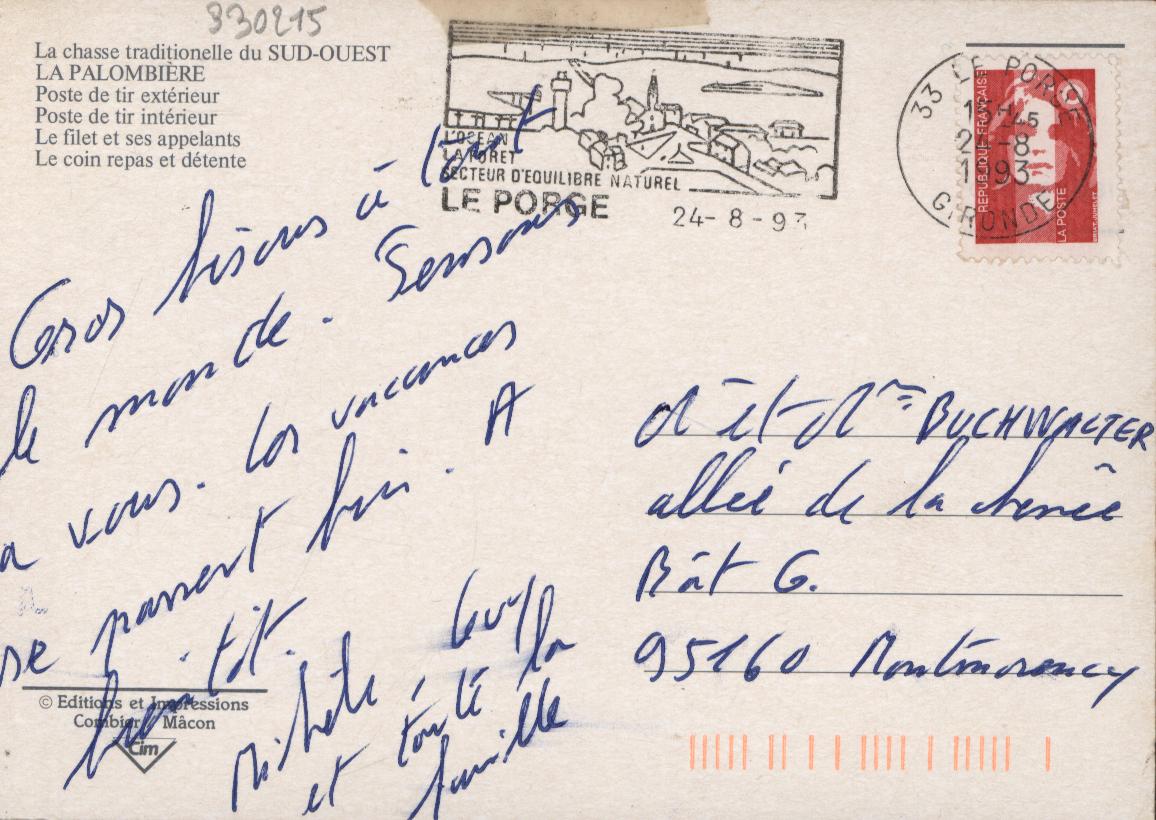 330215
La chasse traditionelle du SUD-OUEST
LA PALOMBIÈRE
Poste de tir extérieur
Poste de tir intérieur
Le filet et ses appelants
Le coin repas et détente
L'OCEAN
LA FORET
SECTEUR D'EQUILIBRE NATUREL
LE PORGE
24-8-93
33 LE PORGE
24-8
1993
GIRONDE
REPUBLIQUE FRANÇAISE
LA POSTE
Gros bisous à tout
le monde. Pensons
a vous. Les vacances
se passent bien. A
bientôt.
Michèle Guy
et toute la
famille
M et Mme BUCHWALTER
allée de la
Bât G.
95160 Montmorency
© Editions et Impressions
Combier Mâcon
Cim